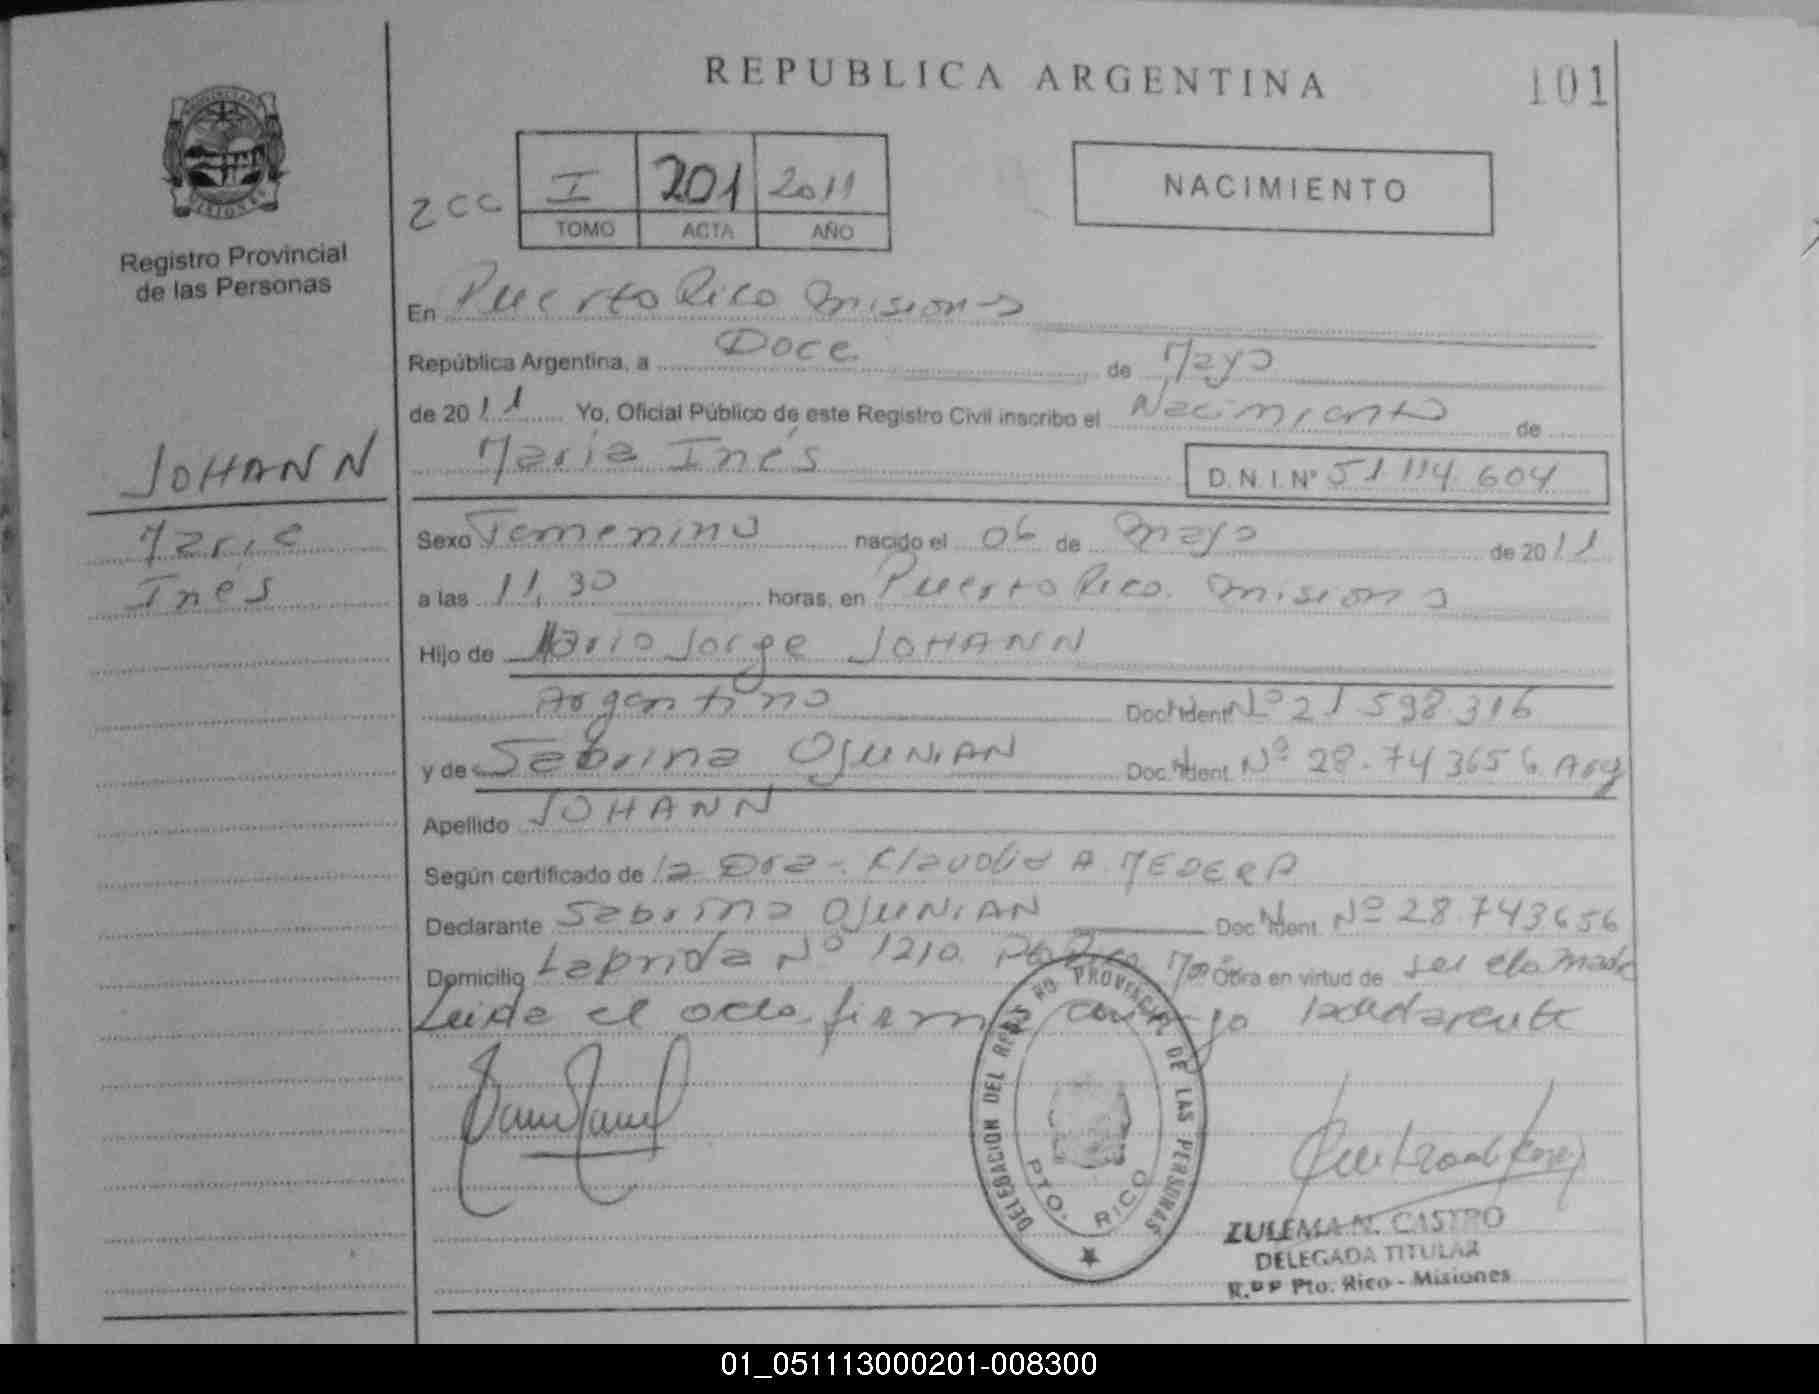 REPUBLICA ARGENTINA
101
PROVINCIA DE
MISIONES
Registro Provincial
de las Personas
2CC
I 201 2011
TOMO ACTA AÑO
NACIMIENTO
En Puerto Rico Misiones
República Argentina, a Doce de Mayo
de 2011 Yo, Oficial Público de este Registro Civil inscribo el Nacimiento de
María Inés D.N.I.Nº 51.114.604
JOHANN
María
Inés
Sexo Femenino nacido el 06 de Mayo de 2011
a las 11,30 horas, en Puerto Rico. Misiones
Hijo de Mario Jorge JOHANN
Argentino Doc. Ident. Nº 21.598.316
y de Sabrina OJUNIAN Doc. Ident. Nº 28.743656 Arg
Apellido JOHANN
Según certificado de la Dra. Klaudia A. MEDERA
Declarante Sabrina OJUNIAN Doc. Ident. Nº 28.743656
Domicilio Laprida Nº 1210. Pto Rico Obra en virtud de ser la madre
Leida el acta firma conmigo la declarante
DELEGACION DEL REG. PROVINCIAL DE LAS PERSONAS
PTO. RICO
ZULEMA N. CASTRO
DELEGADA TITULAR
R.P.P Pto. Rico - Misiones
01_051113000201-008300